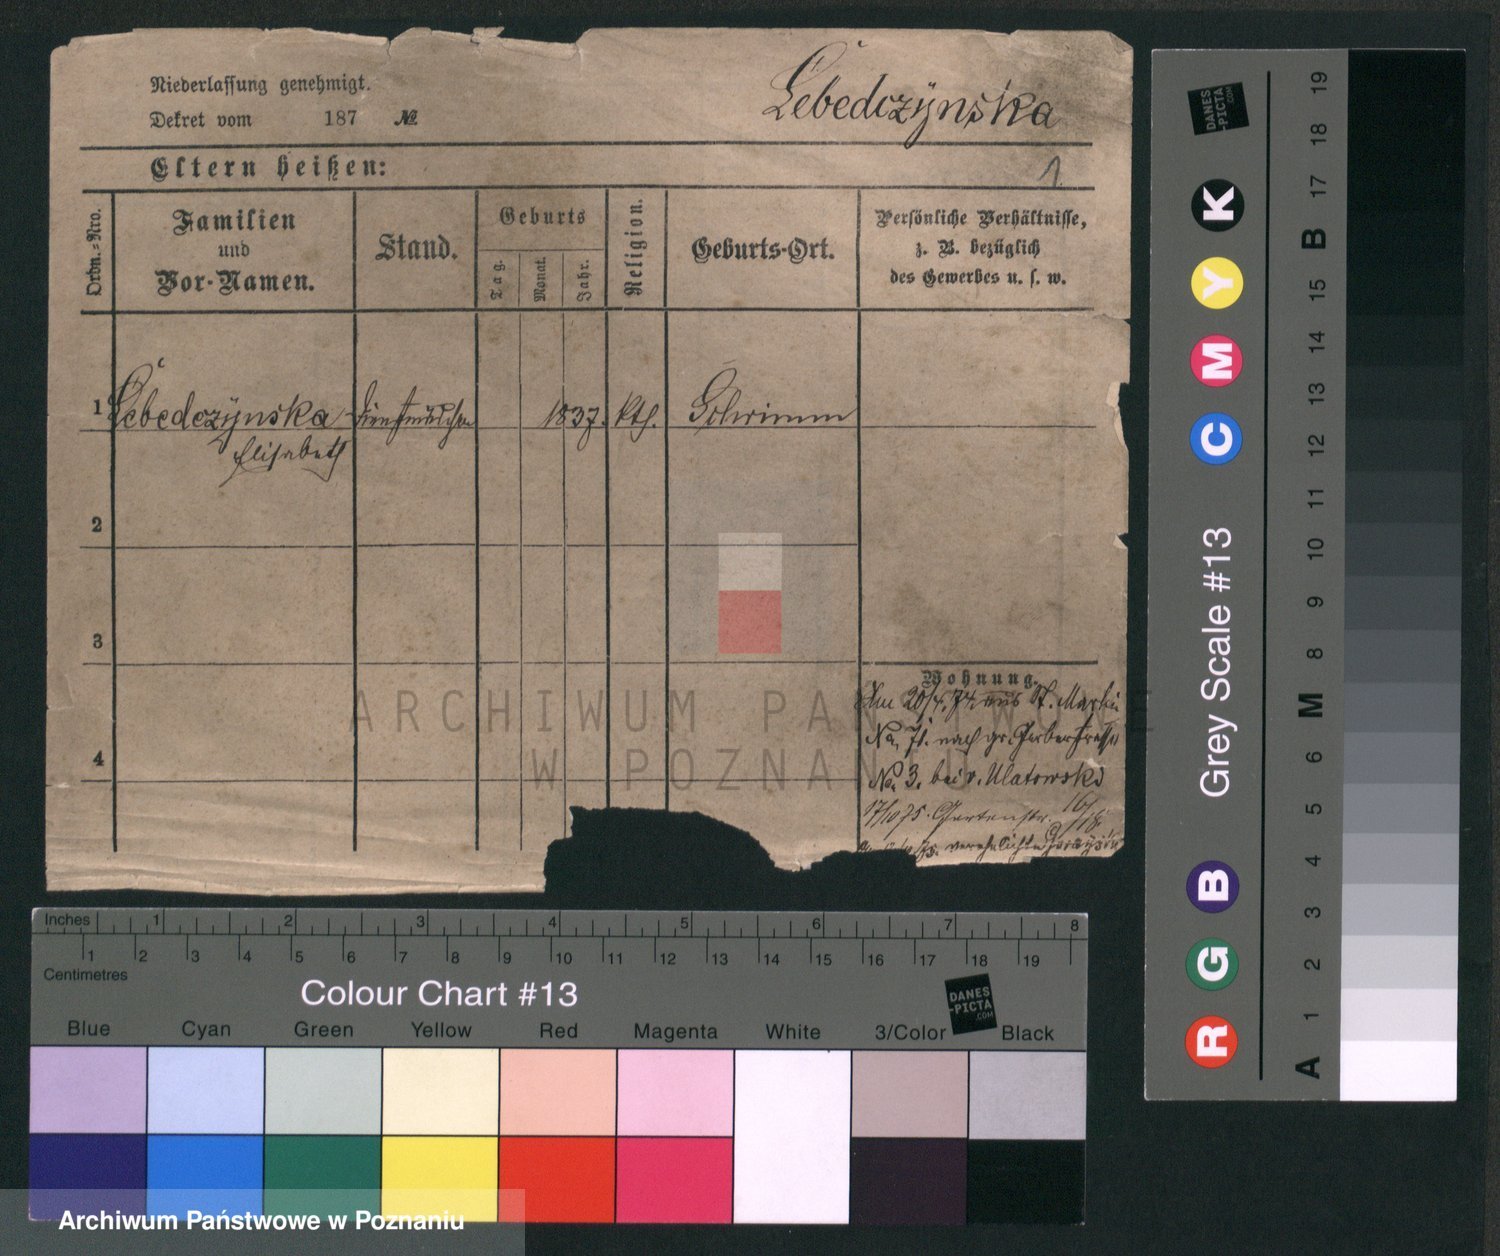 Niederlassung genehmigt.
Dekret vom 187 №
Lebedczÿnska
Eltern heißen:
1
Ordn.-Nro.
Familien
und
Vor-Namen.
Stand.
Geburts
Tag.
Monat.
Jahr.
Religion.
Geburts-Ort.
Persönliche Verhältnisse,
z. B. bezüglich
des Gewerbes u. s. w.
1 Lebedczÿnska Dienstmädchen 1837. kth. Schrimm
Elisabeth
2
3
4
Wohnung.
Am 20/4. 74. aus St. Martin
No. 71. nach gr. Gerberstraße
No. 3. bei v. Ulatowski
17/10 75. Gartenstr.
verehelichte
ARCHIWUM PAŃSTWOWE
W POZNANIU
Inches 1 2 3 4 5 6 7 8
1 2 3 4 5 6 7 8 9 10 11 12 13 14 15 16 17 18 19
Centimetres
Colour Chart #13
DANES
-PICTA
.COM
Blue Cyan Green Yellow Red Magenta White 3/Color Black
Archiwum Państwowe w Poznaniu
Grey Scale #13
R G B C M Y K
DANES
-PICTA
.COM
A 1 2 3 4 5 6 M 8 9 10 11 12 13 14 15 B 17 18 19